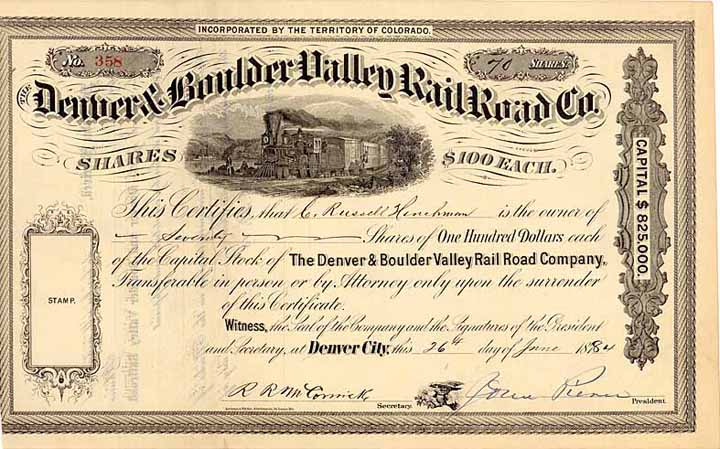 INCORPORATED BY THE TERRITORY OF COLORADO.
No. 358
70 SHARES.
THE Denver & Boulder Valley Rail Road Co.
SHARES $100 EACH.
CAPITAL $ 825,000.
This Certifies, that C. Russell Hinchman is the owner of
Seventy Shares of One Hundred Dollars each
of the Capital Stock of The Denver & Boulder Valley Rail Road Company,
Transferable in person or by Attorney only upon the surrender
of this Certificate.
STAMP.
Witness, the Seal of the Company and the Signatures of the President
and Secretary, at Denver City, this 26th day of June 1884
R R McCormick Secretary. John President.